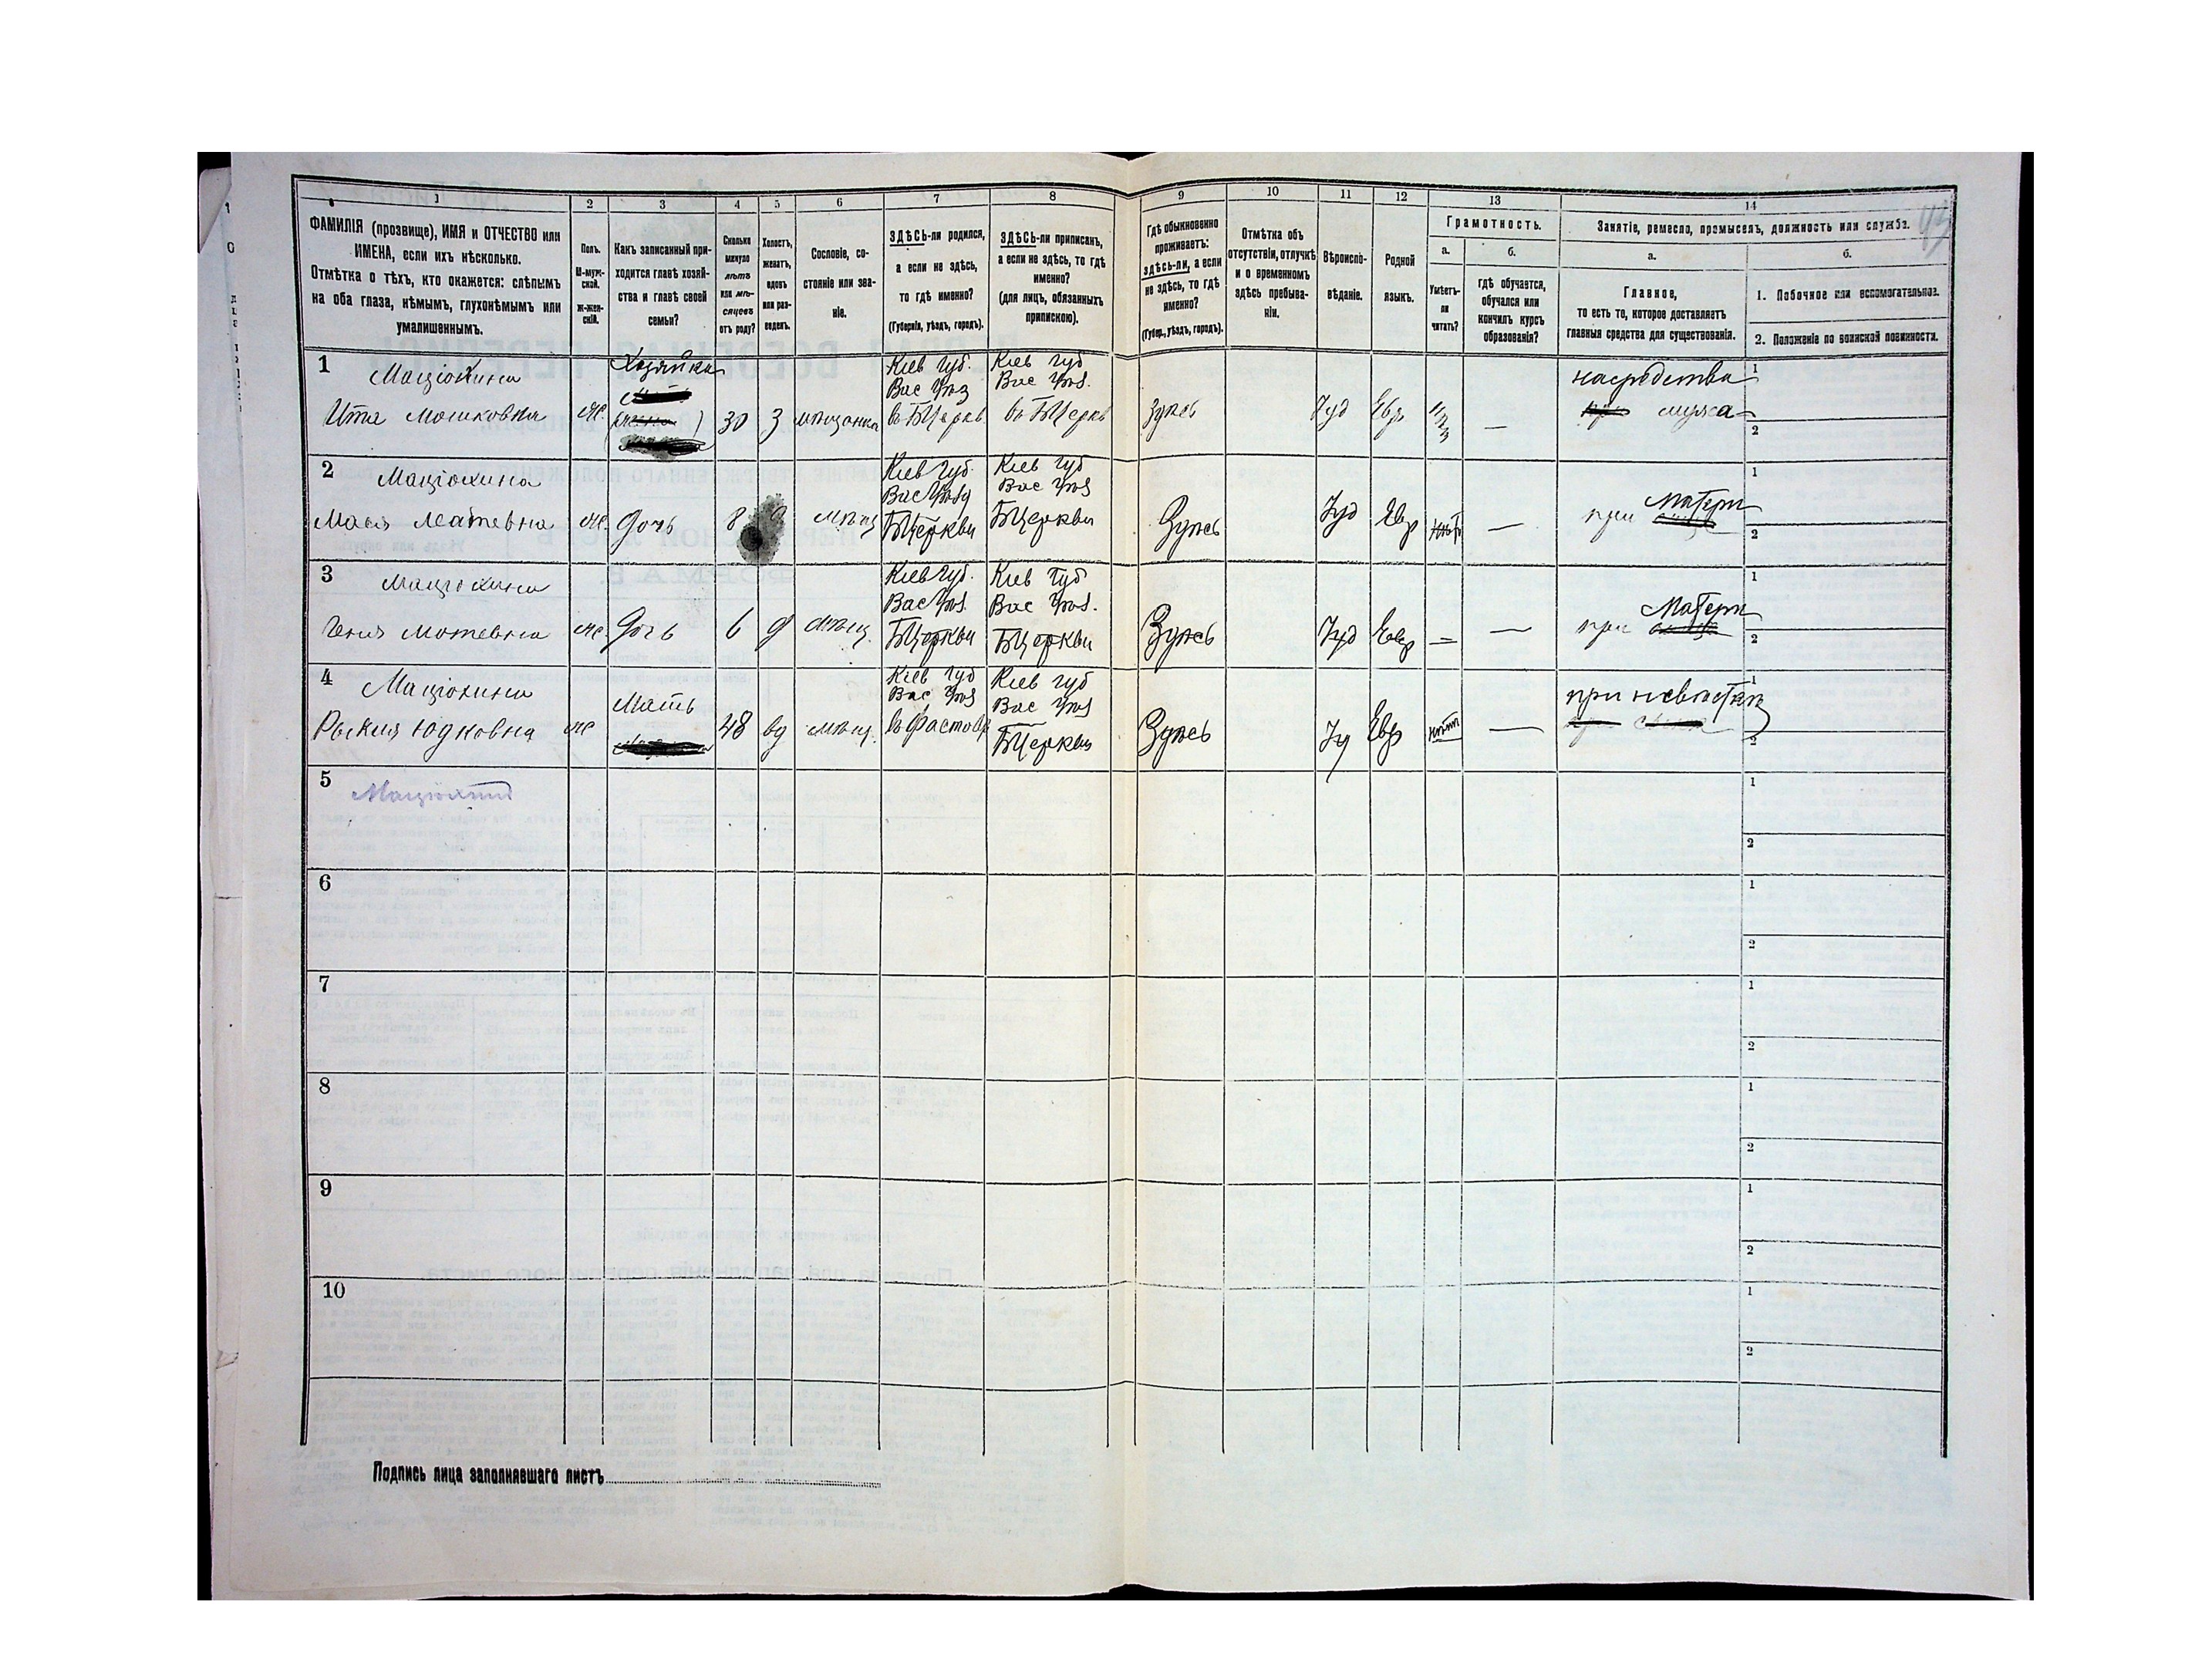 1 2 3 4 5 6 7 8 9 10 11 12 13 14
ФАМИЛІЯ (прозвище), ИМЯ и ОТЧЕСТВО или
ИМЕНА, если ихъ нѣсколько.
Отмѣтка о тѣхъ, кто окажется: слѣпымъ
на оба глаза, нѣмымъ, глухонѣмымъ или
умалишеннымъ.
Полъ.
М-муж-
ской.
Ж-жен-
скій.
Какъ записанный при-
ходится главѣ хозяй-
ства и главѣ своей
семьи?
Сколько
минуло
лѣтъ
или мѣ-
сяцевъ
отъ роду?
Холостъ,
женатъ,
вдовъ
или раз-
веденъ.
Сословіе, со-
стояніе или зва-
ніе.
ЗДѢСЬ-ли родился,
а если не здѣсь,
то гдѣ именно?
(Губернія, уѣздъ, городъ).
ЗДѢСЬ-ли приписанъ,
а если не здѣсь, то гдѣ
именно?
(для лицъ, обязанныхъ
припискою).
Гдѣ обыкновенно
проживаетъ:
здѣсь-ли, а если
не здѣсь, то гдѣ
именно?
(Губер., уѣздъ, городъ).
Отмѣтка объ
отсутствіи, отлучкѣ
и о временномъ
здѣсь пребыва-
ніи.
Вѣроиспо-
вѣданіе.
Родной
языкъ.
Грамотность.
а.
Умѣетъ-
ли
читать?
б.
гдѣ обучается,
обучался или
кончилъ курсъ
образованія?
Занятіе, ремесло, промыселъ, должность или служба.
а.
Главное,
то есть то, которое доставляетъ
главныя средства для существованія.
б.
1. Побочное или вспомогательное.
2. Положеніе по воинской повинности.
1
Маціохина
Ита Мошковна
ж.
Хозяйка
30
З
мѣщанка
Кіев губ.
Вас уѣз
в БЦеркв
Кіев губ
Вас уѣз.
в БЦеркв
Здѣсь
Іуд
Евр
—
на средства
мужа
1
2
2
Маціохина
Мася Мотевна
ж.
дочь
8
д
мѣщ
Кіев губ.
Вас уѣзд
БЦеркви
Кіев губ
Вас уѣз
БЦеркви
Здѣсь
Іуд
Евр
нѣт
—
при матери
1
2
3
Маціохина
Геня Мотевна
ж.
дочь
6
д
мѣщ.
Кіев губ.
Вас уѣз.
БЦеркви
Кіев губ
Вас уѣз.
БЦеркви
Здѣсь
Іуд
Евр
—
при матери
1
2
4
Маціохина
Рыкля Юдковна
ж
Мать
48
вд
мѣщ.
Кіев губ
Вас уѣз
в Фастовѣ
Кіев губ
Вас уѣз
БЦеркви
Здѣсь
Іу
Евр
нѣт
—
при невѣсткѣ
1
2
5
1
2
6
1
2
7
1
2
8
1
2
9
1
2
10
1
2
Подпись лица заполнявшаго листъ